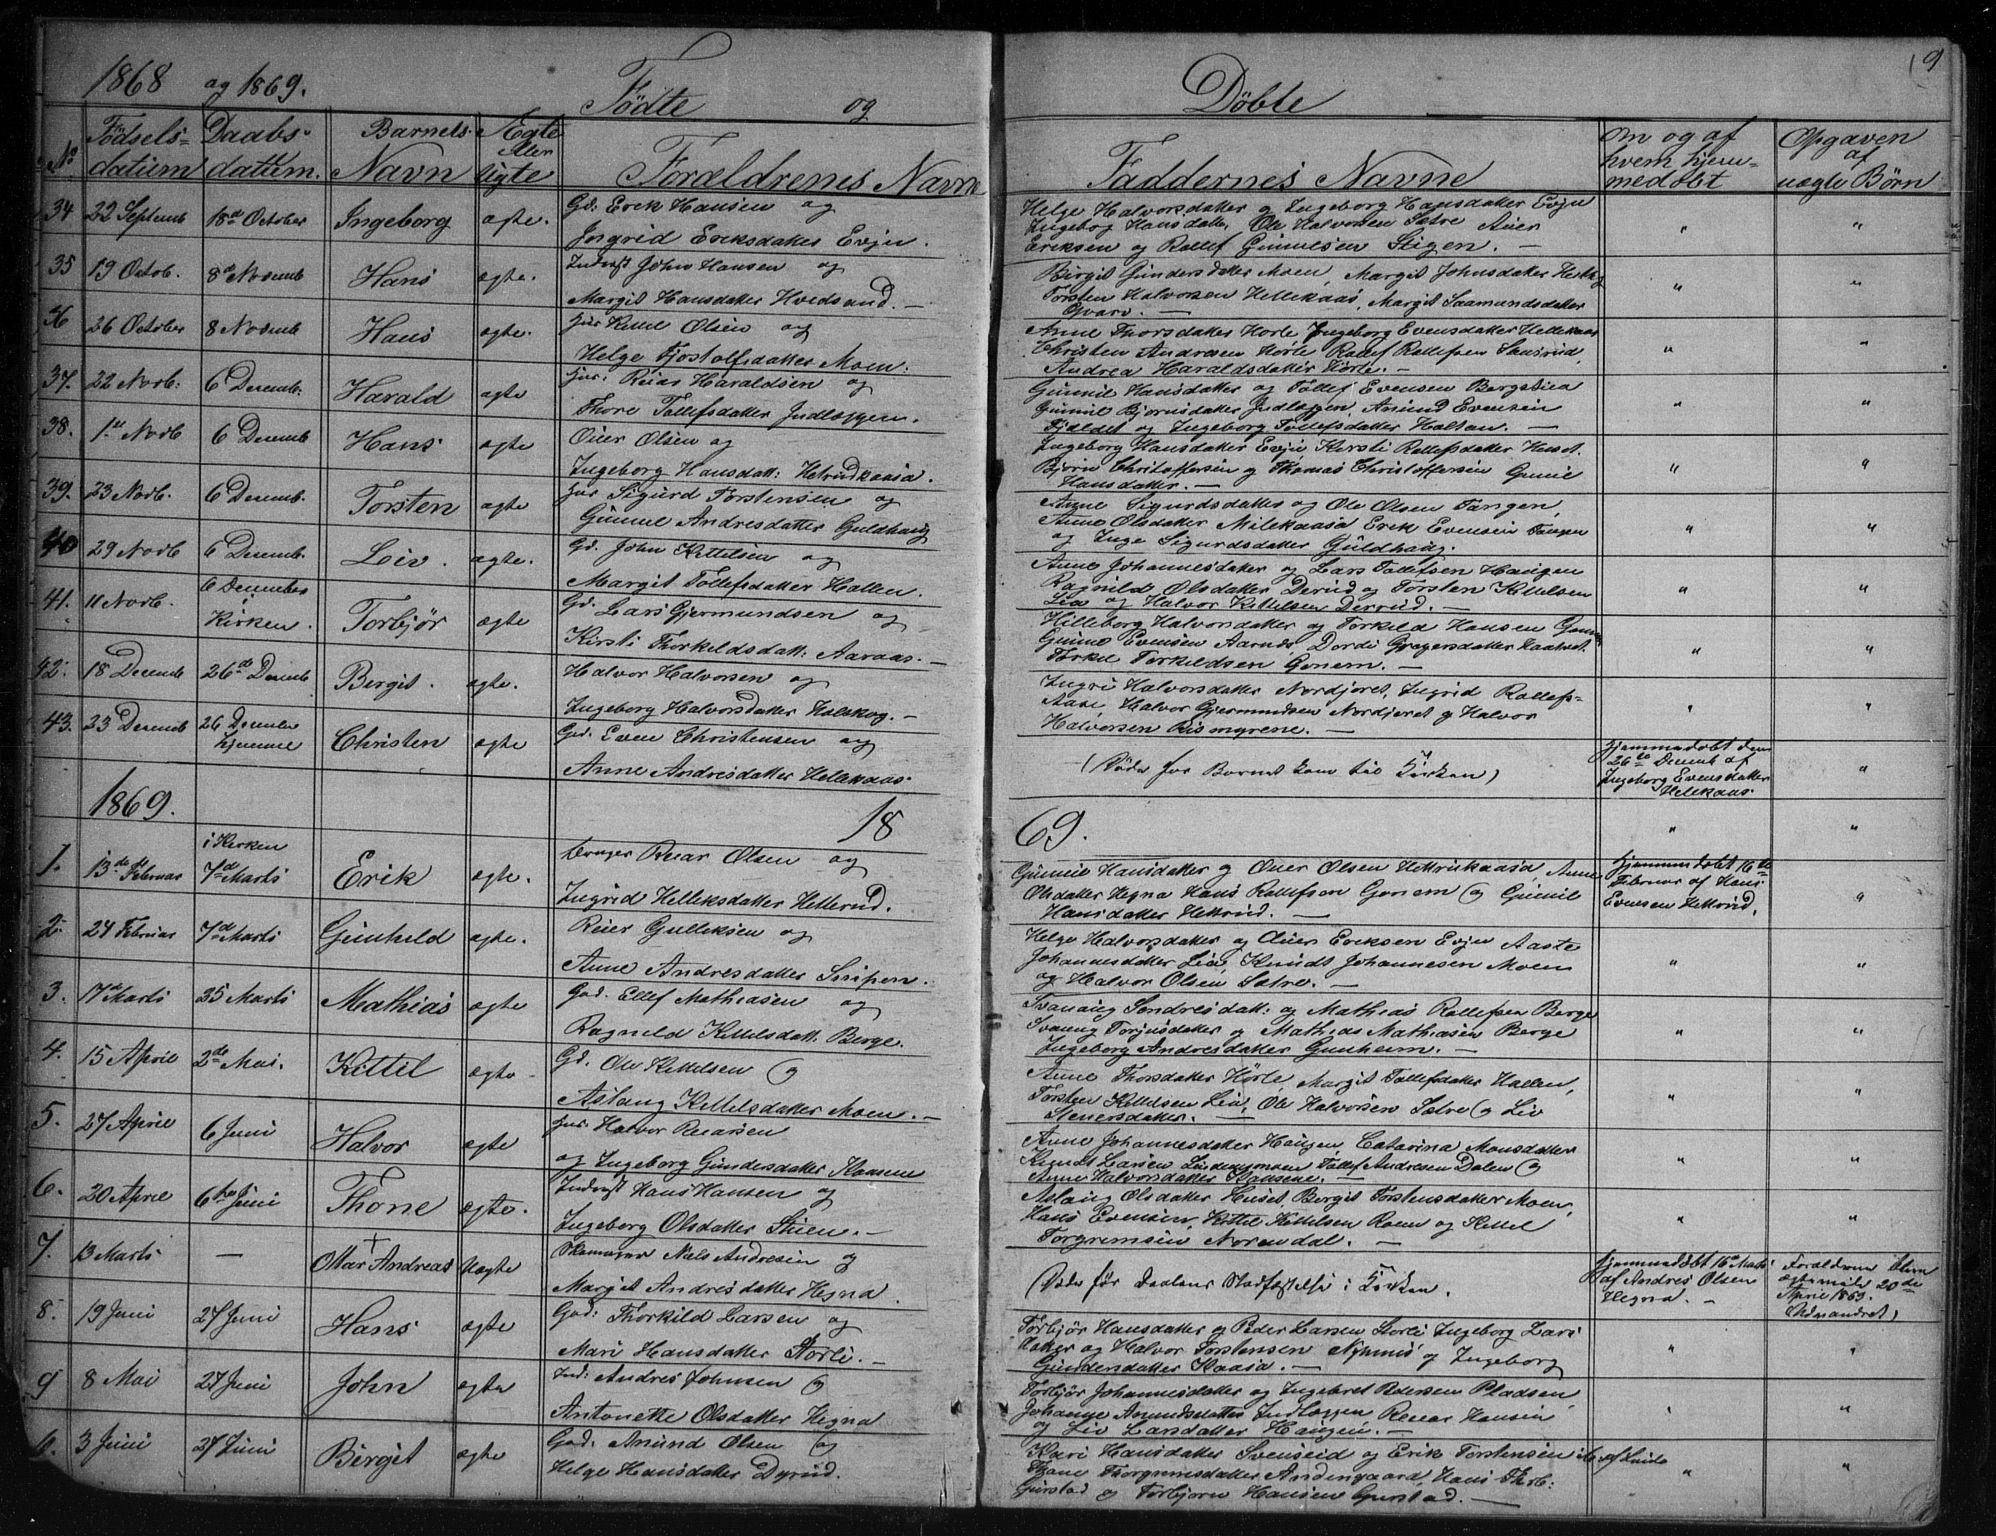 1868 og 1869.
Fødte og Døbte
9
No
Fødselsdatum
Daabsdattem.
Barnets Navn
Ægte eller
Forældrenes Navne
Faddernes Navne
Om og af hvem hjemmedøbt
Opgaven af uægte Børn
34 22 Septemb 18de October Ingeborg ægte. Gd. Erek Hansen og
Ingrid Eriksdatter Evju.
Helge Halvorsdatter og Ingeborg Hansdatter Evju
Ingeborg Hansdatter, Ole Halvorsen Sætre
Eriksen og Rollef Gunnulsen Stigen. —
35 19 Octob. 8de Novemb Hans ægte. Indrst John Hansen og
Margit Hansdatter Hvedsand. —
Birgit Gundersdatter Moen, Margit Johnsdatter
Torsten Halvorsen Hellekaas, Margit Saamundsdatter
Gvarv. —
36 26 October 8 Novemb Hans ægte. Hus Kittel Olsen og
Helge Fjostolfsdatter Moen.
Anne Thorsdatter Hørte Ingeborg Evensdatter Hellekaas
Christen Andresen Hørte Rollef Rollefsen
Andrea Haraldsdatter Hørte. —
37. 22 Novb: 6 Decemb. Harald ægte Hus: Reiar Haraldsen og
Thore Tollefsdatter Indløppen.
Gunnil Hansdatter og Tollef Evensen Bergstien
Gunnil Bjørnsdatter Indløppen, Amund Evensen
og Ingeborg Tollefsdatter Haltan. —
38. 1ste Novb 6 Decemb Hans ægte Oluer Olsen og
Ingeborg Hansdatt: Hetrudkaasa.
Ingeborg Hansdatter Evju Kirsti Rollefsdatter Huset
Bjørn Christoffersen og Thomas Christoffersen Gunil
Hansdatter. —
39. 23 Novb. 6 Decemb. Torsten ægte Hus Sigurd Torstensen og
Gunnil Andresdatter Guldhaug
Anne Sigurdsdatter og Ole Olsen Tangen,
Anne Olsdatter Milekaasa Erek Evensen Tangen
og Inge Sigurdsdatter Guldhaug.
40 29 Novb 6 Decemb. Leiv. ægte. Gd. John Kittelsen og
Margit Tollefsdatter Hallen.
Anne Johannesdatter og Lars Tollefsen Haugen
Ragnild Olsdatter Derud og Torsten Kittelsen
Lia og Halvor Kittelsen Derrud. —
41. 11 Novb. 6 December i Kirken. Torbjør ægte Gd. Lars Gjermundsen og
Kirsti Thorkildsdatt. Aaraas. —
Hilleborg Halvorsdatter og Torkild Hansen
Gunne Evensen Aarnes Dordi Gregersdatter
Torkil Torkildsen Gonem. —
42. 18 Decemb 26de Decemb Bergit. ægte. Halvor Halvorsen og
Ingeborg Halvorsdatter Holskog. —
Ingri Halvorsdatter Nordjoret, Ingrid Rollefs-
Aase, Halvor Gjermundsen Nordjoret og Halvor
Halvorsen Rismyrene. —
43. 23 Decemb 26 December hjemme Christen ægte Gd. Even Christensen og
Anne Andresdatter Hellekaas.
(Døde før Barnet kom til Kirken)
Hjemmedøbt den
26de Decemb af
Ingeborg Evensdatter
Hellekaas
1869.
1869.
1. 13de Februar i Kirken 7de Marts Erik ægte. Bruger Reiar Olsen og
Ingrid Helleksdatter Hetterud.
Gunnil Hansdatter og Oluer Olsen Hettrukaasa Anne
Olsdatter Hegna Hans Rollefsen Gonem og Gunil
Hansdatter Hettrud. —
Hjemmedøbt 16de
Februar af Hans
Evensen Hettrud.
2. 24 Februar 7de Marts Gunheld ægte. Reier Gulleksen og
Anne Andresdatter Snipen.
Helge Halvorsdatter og Oluer Eriksen Evju Aaste
Johannesdatter Lia, Knudt Johannesen Moen
og Halvor Olsen Sætre. —
3. 1ste Marts 25 Marts Mathias ægte Gad. Ellef Mathiasen og
Ragneld Kittelsdatt. Berge.
Svanaug Sondresdatt: og Mathias Rollefsen Berge
Svanug Torjusdatter og Mathias Mathiasen Berge
Ingeborg Andresdatter Gunheim. —
4. 15 April 2den Mai. Kittel ægte Gd. Ole Kittelsen og
Aslaug Kittelsdatter Moen. —
Anne Thorsdatter Hørte, Margit Tollefsdatter Hallen,
Torsten Kittelsen Lia, Ole Halvorsen Sætre og Liv
Stenersdatter. —
5. 27 April 6 Juni Halvor ægte Hus: Halvor Reiarsen
og Ingeborg Gundersdatter Kaasene
Anne Johannesdatter Haugen, Catarina Monsdatter
Knudt Larsen Tollef Andresen Dalen og
Anne Halvorsdatter Kaasene. —
6. 20 April 6te Juni Thone ægte. Indrst Hans Hansen og
Ingeborg Olsdatter Stien. —
Aslaug Olsdatter Huset, Bergit Torstensdatter Moen,
Hans Evensen, Kittel Kittelsen Roen og Kittel
Torgrimsen Norendal. —
7. 13 Marts — Ottar Andreas uægte Skomager Niels Andresen og
Margit Andresdatter Hegna.
(Døde før Daabens Stadfæstelse i Kirken.
Hjemmedøbt 16de Marts
af Andres Olsen
Hegna. —
Forældrene bleve
ægteviede 20de
April 1869.
Udvandret)
8. 19 Juni 27 Juni Hans ægte Gad: Thorkild Larsen og
Mari Hansdatter Storli. —
Torbjør Hansdatter og Peder Larsen Storli Ingeborg Lars
datter og Halvor Torstensen og Ingeborg
Gundersdatter Kaasa. —
9 8 Mai 27 Juni John ægte Ind: Andres Johnsen og
Antonette Olsdatter Hegna
Torbjør Johannesdatter og Ingebret Pedersen Pladsen,
Johanne Amundsdatter Indløppen Reiar Hansen
og Liv Larsdatter Haugen. —
3 Juni 27 Juni Birgit ægte Gad: Amund Olsen og
Helge Hansdatter Dyrud.
Kari Hansdatter Svenseid og Erik Torstensen
Thone Thorgrimsdatter Hans Thrb:
Gurstad og Torbjørn Hansen Gurstad. —